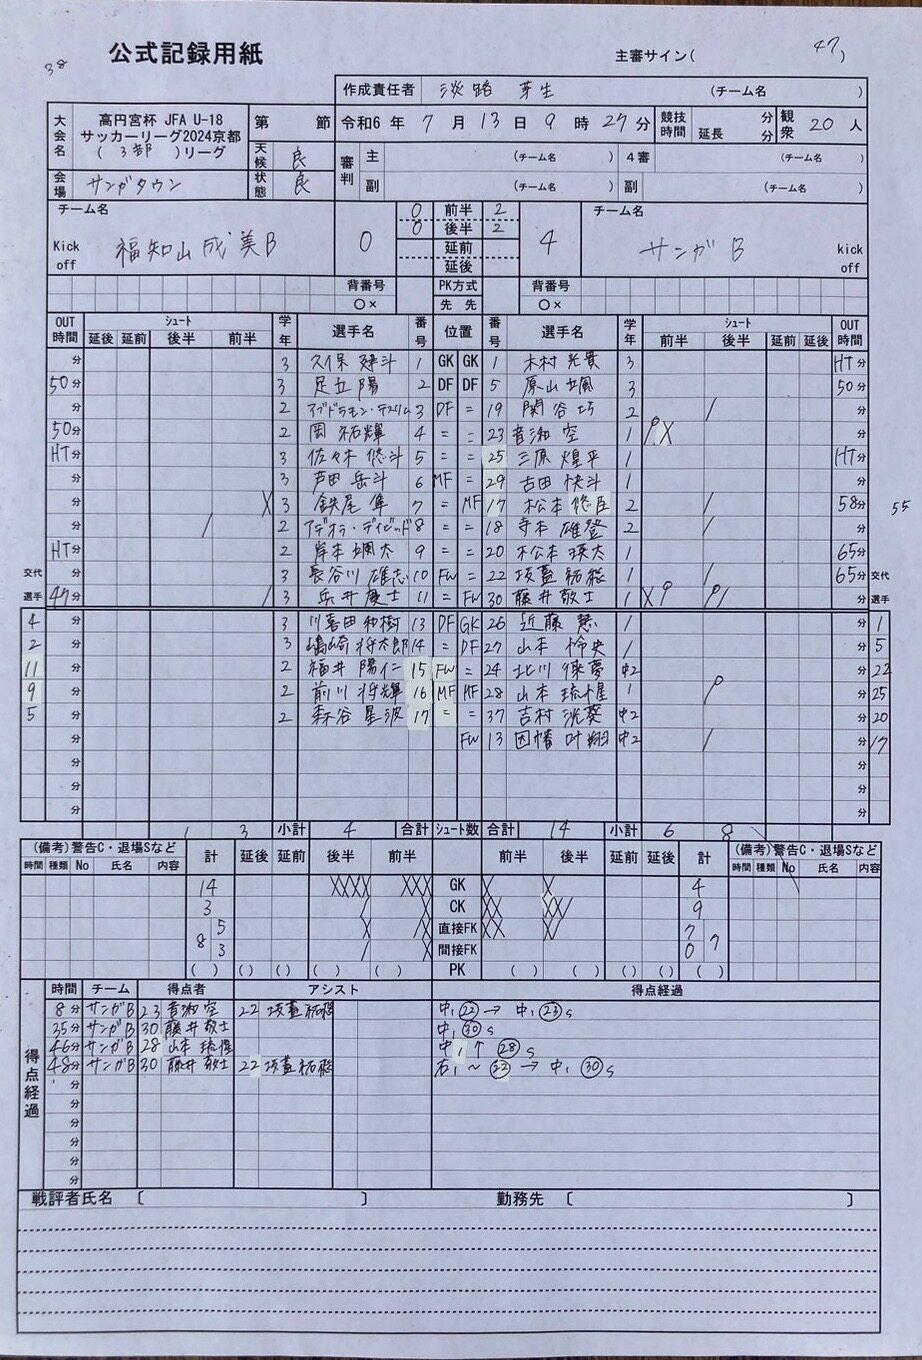 公式記録用紙
38
主審サイン( 47 )
作成責任者 淡路 芽生 (チーム名 )
大会名 高円宮杯 JFA U-18
サッカーリーグ2024京都
( 3部 )リーグ
第 節 令和6年 7月 13日 9時 27分 競技時間 分 延長 分 観衆 20人
会場 サンガタウン
天候 良
状態 良
審判 主 (チーム名 ) 4審 (チーム名 )
副 (チーム名 ) 副 (チーム名 )
チーム名 福知山成美B
Kick off
0
0 前半 2
0 後半 2
延前
延後
4
チーム名 サンガB
kick off
背番号 PK方式 背番号
○× 先 先 ○×
OUT時間 シュート 延後 延前 後半 前半 学年 選手名 番号 位置 番号 選手名 学年 シュート 前半 後半 延前 延後 OUT時間
分 3 久保 建斗 1 GK GK 1 木村 光貴 3 HT分
50分 3 足立 陽 2 DF DF 5 原山 颯 3 50分
分 2 3 DF = 19 関谷 巧 2 / 分
50分 2 岡 祐輝 4 = = 23 音湖 空 1 分
HT分 3 佐々木 悠斗 5 = = 25 三原 煌平 1 HT分
分 3 芦田 岳斗 6 MF = 29 古田 快斗 1 分
分 X 3 鉄尾 隼 7 = MF 17 松本 悠臣 2 / 58分 55
分 / 2 アデオラ・デイビッド 8 = = 18 寺本 雄登 2 / 分
HT分 2 岸本 颯太 9 = = 20 松本 瑛太 1 65分
交代 分 3 長谷川 雄志 10 FW = 22 1 / 65分 交代
選手 47分 / 3 11 = FW 30 藤井 敬士 1 分 選手
4 分 3 川喜田 和樹 13 DF GK 26 近藤 慧 1 分 1
2 分 3 嶋崎 将太郎 14 = DF 27 山本 怜央 1 分 5
11 分 2 福井 陽仁 15 FW = 24 北川 中2 分 22
9 分 2 前川 将輝 16 MF MF 28 山本 琉惺 1 分 25
5 分 2 森谷 星波 17 = = 37 吉村 洸葵 中2 分 20
分 FW 13 因幡 叶翔 中2 / 分 17
分 分
分 分
分 分
1 3 小計 4 合計 シュート数 合計 14 小計 6 8
(備考)警告C・退場Sなど 計 延後 延前 後半 前半 前半 後半 延前 延後 計 (備考)警告C・退場Sなど
時間 種類 No 氏名 内容 時間 種類 No 氏名 内容
14 XXXX XXX GK X X 4
3 CK 9
8 5 直接FK 7 7
3 間接FK 0
( ) ( ) ( ) ( ) ( ) PK ( ) ( ) ( ) ( ) ( )
得点経過
時間 チーム 得点者 アシスト 得点経過
8分 サンガB 23 音湖 空 22 中, ㉒ → 中, ㉓s
35分 サンガB 30 藤井 敬士 中, ㉚s
46分 サンガB 28 山本 琉惺 中, ↑ ㉘s
48分 サンガB 30 藤井 敬士 22 右, ~ ㉒ → 中, ㉚s
分
分
分
分
分
分
戦評者氏名 〔 〕 勤務先 〔 〕